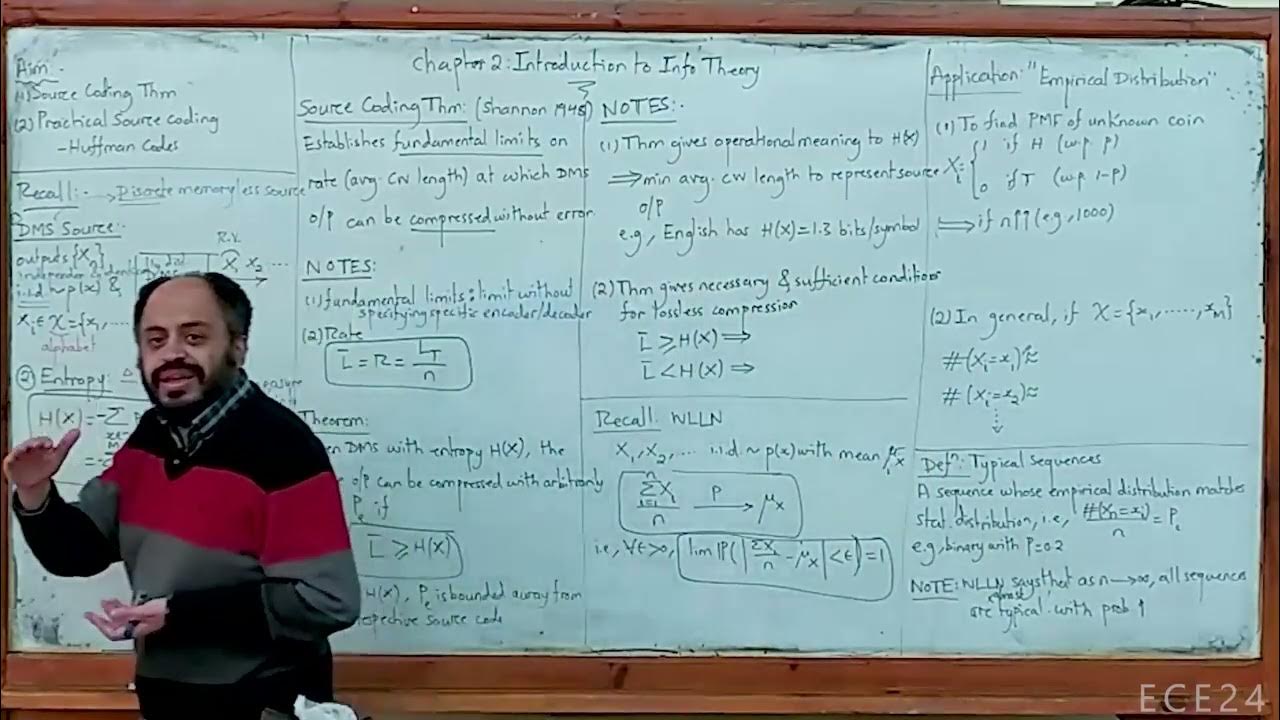 Chapter 2: Introduction to Info Theory
Aim:
(1) Source Coding Thm
(2) Practical Source coding
- Huffman Codes
Recall: → Discrete memoryless source
DMS Source:
R.V.
outputs {Xn}
X, X2 ...
i.i.d ~ p(x) &
Xi ∈ X = {x1, ...
alphabet
② Entropy: ≜
H(X) = -Σ
= -Σ
Source Coding Thm: (Shannon 1948)
Establishes fundamental limits on
rate (avg. CW length) at which DMS
o/p can be compressed without error
NOTES:
(1) fundamental limits: limit without
specifying specific encoder/decoder
(2) Rate
L̄ = R = L_T / n
Theorem:
DMS with entropy H(X), the
o/p can be compressed with arbitrarily
Pe if
L̄ ≥ H(X)
H(X), Pe is bounded away from
source code
NOTES:
(1) Thm gives operational meaning to H(X)
⇒ min avg. CW length to represent source
o/p
e.g., English has H(X) = 1.3 bits/symbol
(2) Thm gives necessary & sufficient condition
for lossless compression
L̄ ≥ H(X) ⇒
L̄ < H(X) ⇒
Recall: WLLN
X1, X2, ... i.i.d. ~ p(x) with mean μx
Σ_{i=1}^{n} Xi / n —P→ μx
i.e., ∀ε>0, lim IP(|ΣXi/n - μx| < ε) = 1
Application: "Empirical Distribution"
(1) To find PMF of unknown coin
Xi = { 1 if H (w.p. p)
0 if T (w.p 1-p)
⇒ if n↑↑ (e.g., 1000)
(2) In general, if X = {x1, ....., xM}
#(Xi = x1) ≈
#(Xi = x2) ≈
Defn: Typical Sequences
A sequence whose empirical distribution matches
stat. distribution, i.e., #(Xn = xi) / n = Pi
e.g., binary with P=0.2
NOTE: WLLN says that as n → ∞, all sequences
almost
are typical with prob 1
ECE24